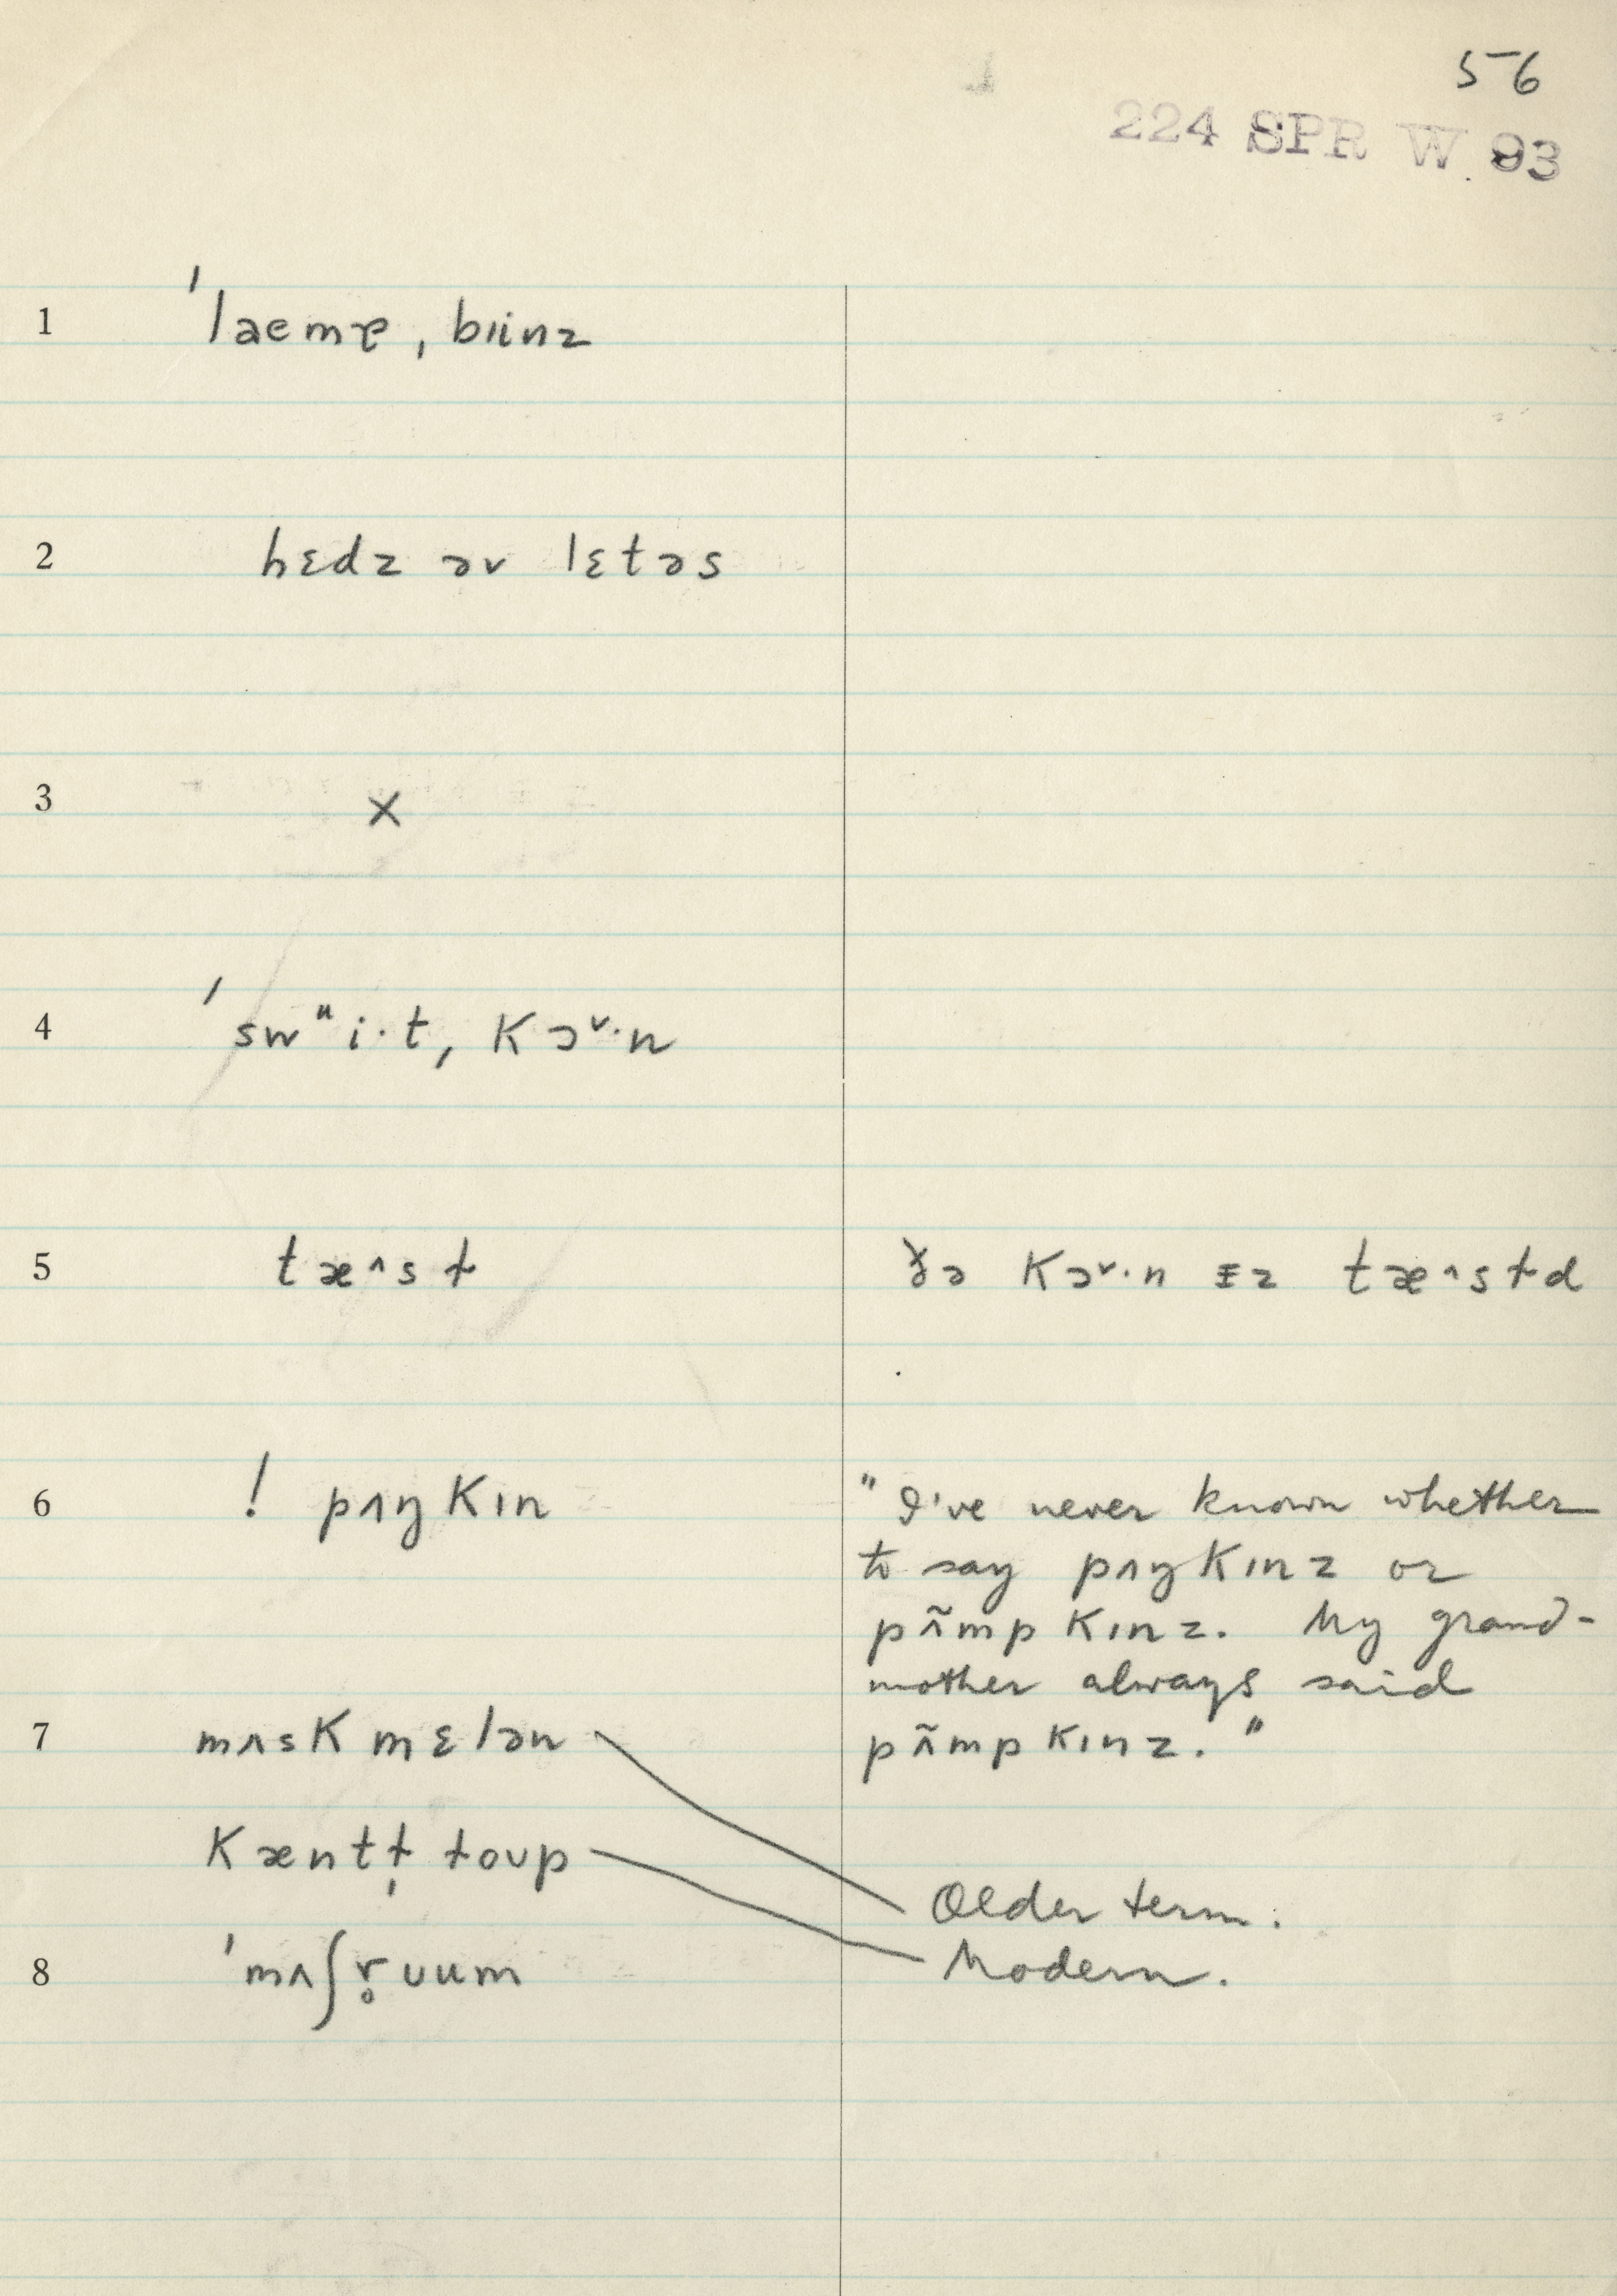 56
224 SPR W 93
1 ˈlæmɐ ˌbɪinz
2 hɛdz əv lɛtəs
3 X
4 ˈswᵘi·tˌ kɔ˅·n
5 tæ^sɫ ðə kɔ˅·n ɪz tæ^sɫd
6 ! pʌŋkɪn "I've never known whether
to say pʌŋkɪnz or
pʌ̃mpkɪnz. My grand-
mother always said
7 mʌskmɛlən pʌ̃mpkɪnz."
kæntɫ̩ ɫoʊp Older term.
8 ˈmʌʃr̥ʊum Modern.